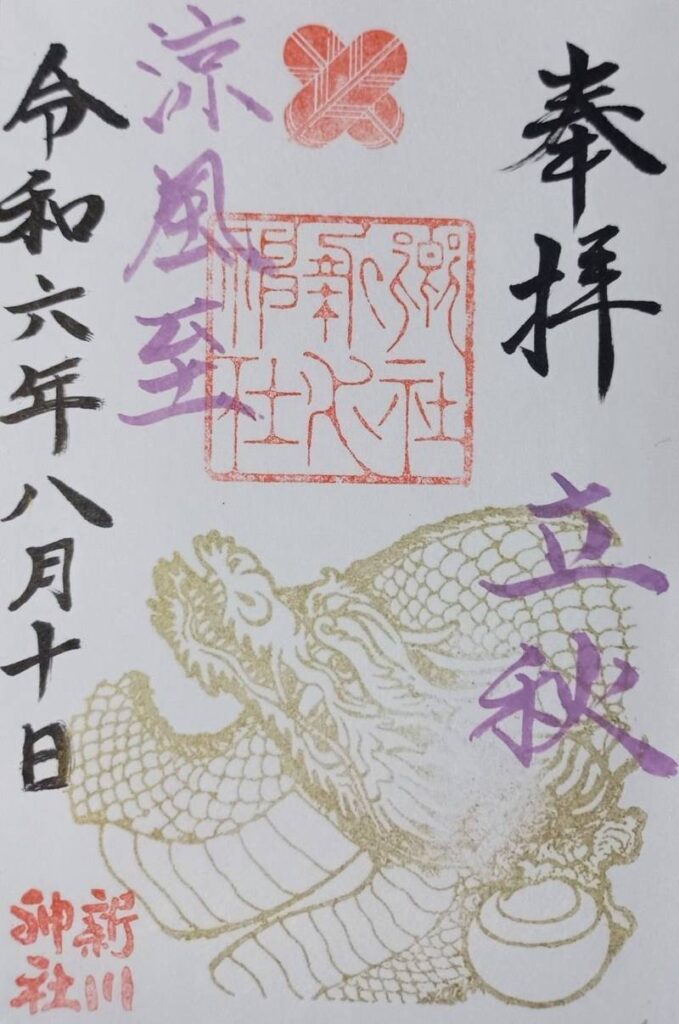 奉拝
立秋
郷社
新川
神社
涼風至
令和六年八月十日
新川
神社